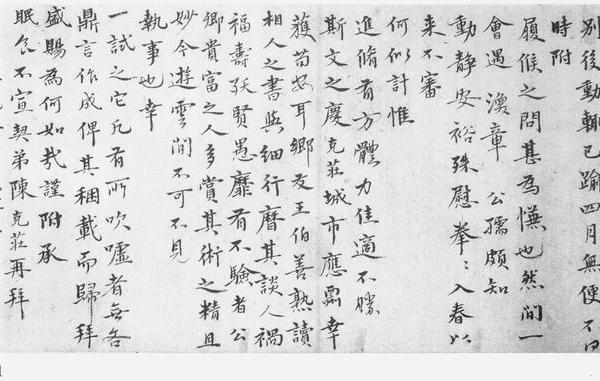 别後動輒已踰四月無便不
時附
履候之問甚為慊也然間一
會遇湧章公孺頗知
動静安裕殊慰拳〻入春以
来不審
何似計惟
進脩有方體力佳適不勝
斯文之慶克莊城市應需幸
獲苟安耳鄉友王伯善熟讀
相人之書與細行曆其談人禍
福壽殀賢愚靡有不驗者公
卿貴富之人多賞其術之精且
妙今遊雲間不可不見
執事也幸
一試之它凡有所吹噓者無各
鼎言作成俾其稛載而歸拜
盛賜為何如哉謹附承
眠食不宣契弟陳克莊再拜